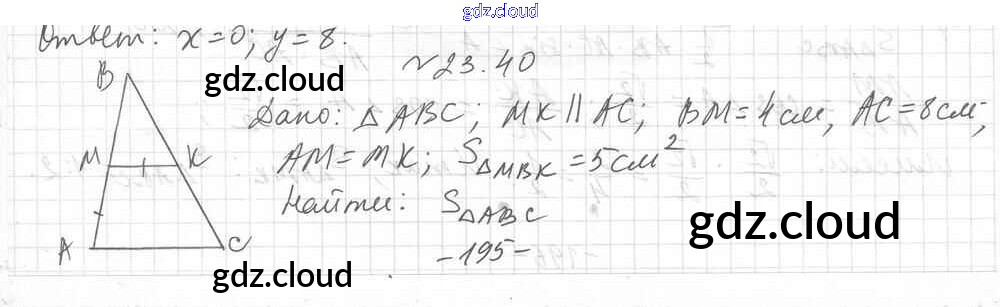 gdz.cloud
Ответ: x=0; y=8.
№23.40
gdz.cloud
Дано: △ABC; MK || AC; BM=4см, AC=8см;
AM=MK; S△MBK=5см²
Найти: S△ABC
B
M K
A C
-195-
gdz.cloud
gdz.cloud